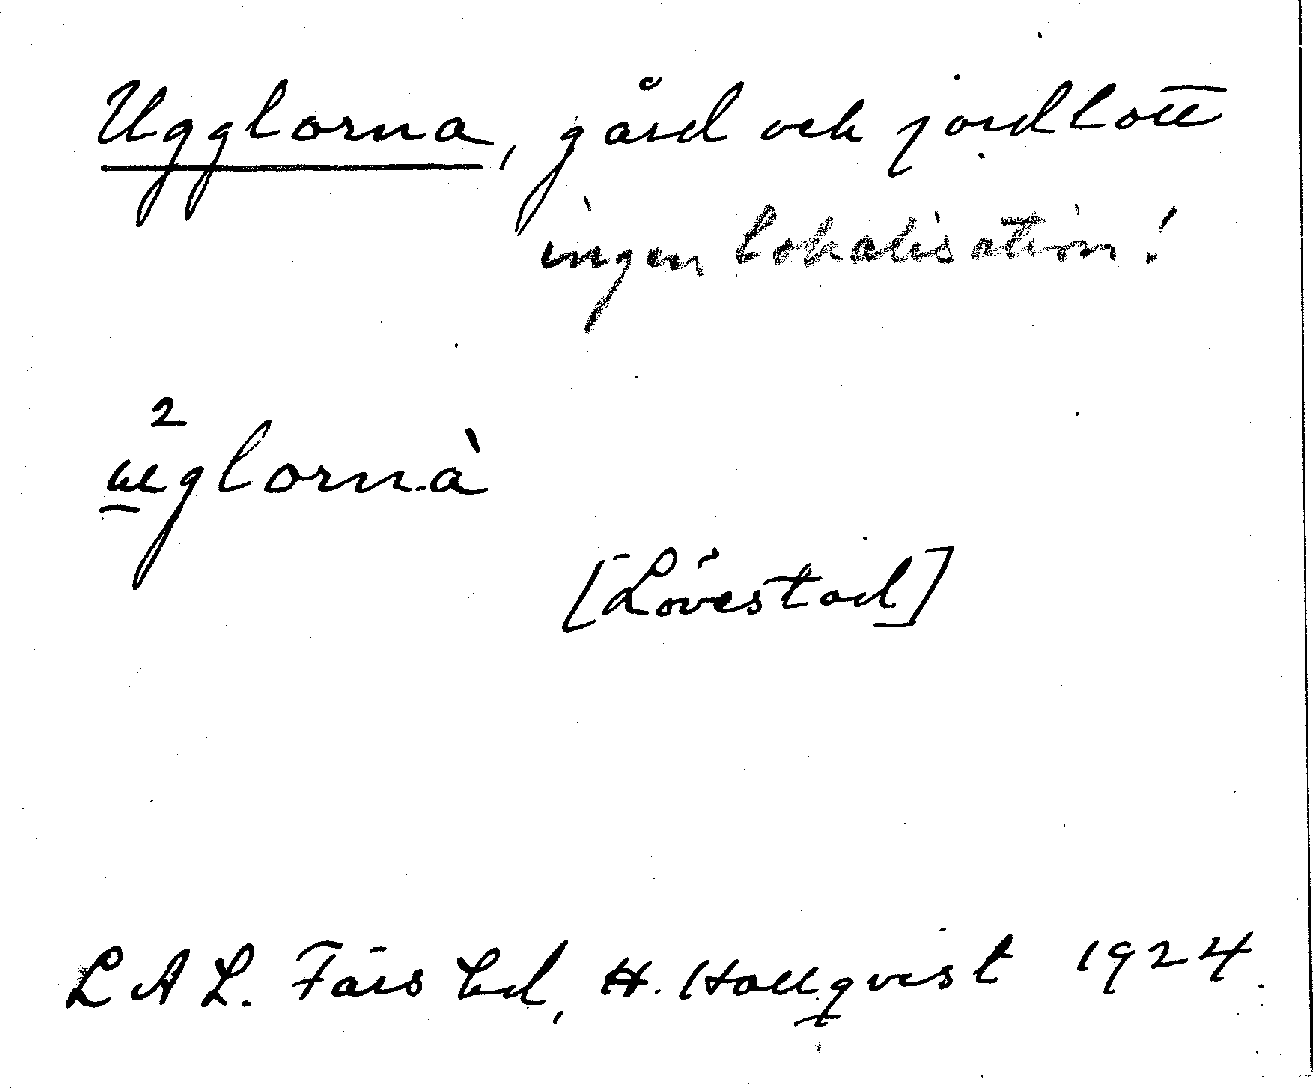 Ugglorna, gård och jordlott
ingen lokalisation!
2
uglornà
[Lövestad]
LAL. Färs hd, H. Hallqvist 1924